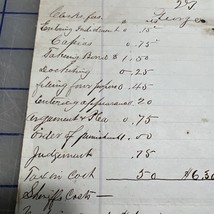 Clerks fees
Entering Indictment " 15
Capias " .75
Taking Bond $ 1.50
Docketing 0-25
filing four papers " .40
Entering appearance " 20
argument & Plea " .75
order of punishment " .50
Judgement .75
Tax in Cost 50 $6.30
Sheriffs Costs —